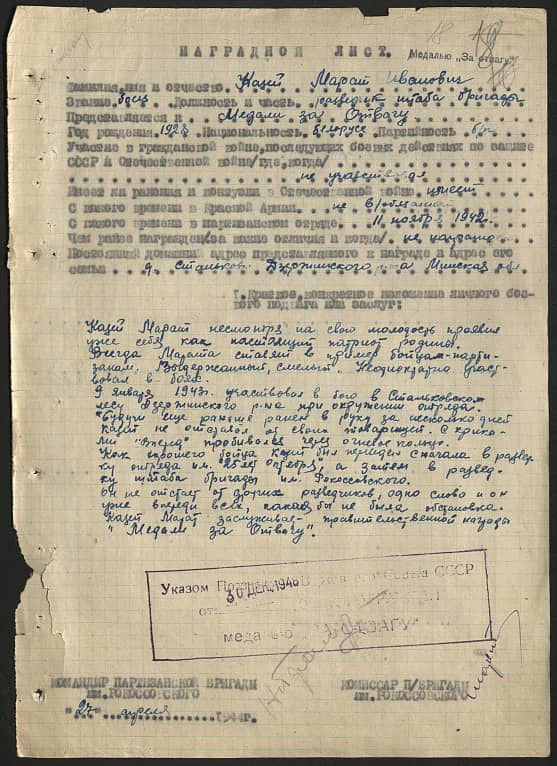 18
НАГРАДНОЙ ЛИСТ.
Медалью „За отвагу“
Фамилия, имя и отчество Казей Марат Иванович
Звание боец Должность и часть разведчик штаба бригады
Представляется к Медали за Отвагу
Год рождения 192 Национальность белорус Партийность б/п
Участие в гражданской войне, последующих боевых действиях по защите
СССР и Отечественной войне/где, когда/
не участвовал
Имеет ли ранения и контузии в Отечественной войне имеет
С какого времени в Красной Армии не в/обязанный
С какого времени в партизанском отряде 11 ноября 1942
Чем ранее награжден/за какие отличия и когда/ не награждался
Постоянный домашний адрес представляемого к награде и адрес его
семьи д. Станьково Дзержинского р-на Минская обл
I. Краткое, конкретное изложение личного бое-
вого подвига или заслуг:
Казей Марат несмотря на свою молодость проявил
уже себя как настоящий патриот родины.
Всегда Марата ставят в пример бойцам-парти-
занам, Выдержанный, смелый. Неоднократно участ-
вовал в боях.
9 января 1943г. участвовал в бою в Станьковском
лесу Дзержинского р-на при окружении отряда.
Будучи еще раньше ранен в руку за несколько дней
Казей не отставал от своих товарищей. С крика-
ми "Вперед" пробивался через огневое кольцо.
Как хорошего бойца Казей был переведен сначала в развед
ку отряда им. "25 лет Октября", а затем в развед-
ку штаба бригады им. Рокоссовского.
Он не отстает от других разведчиков, одно слово и он
уже впереди всех, какая бы не была обстановка.
Казей Марат заслуживает правительственной награды
"Медали за Отвагу".
Указом Верховного Совета СССР
30 ДЕК. 1946
от
медалью
КОМАНДИР ПАРТИЗАНСКОЙ БРИГАДЫ
им. РОКОССОВСКОГО
КОМИССАР П/БРИГАДЫ
им. РОКОССОВСКОГО
"27" апреля 1944г.